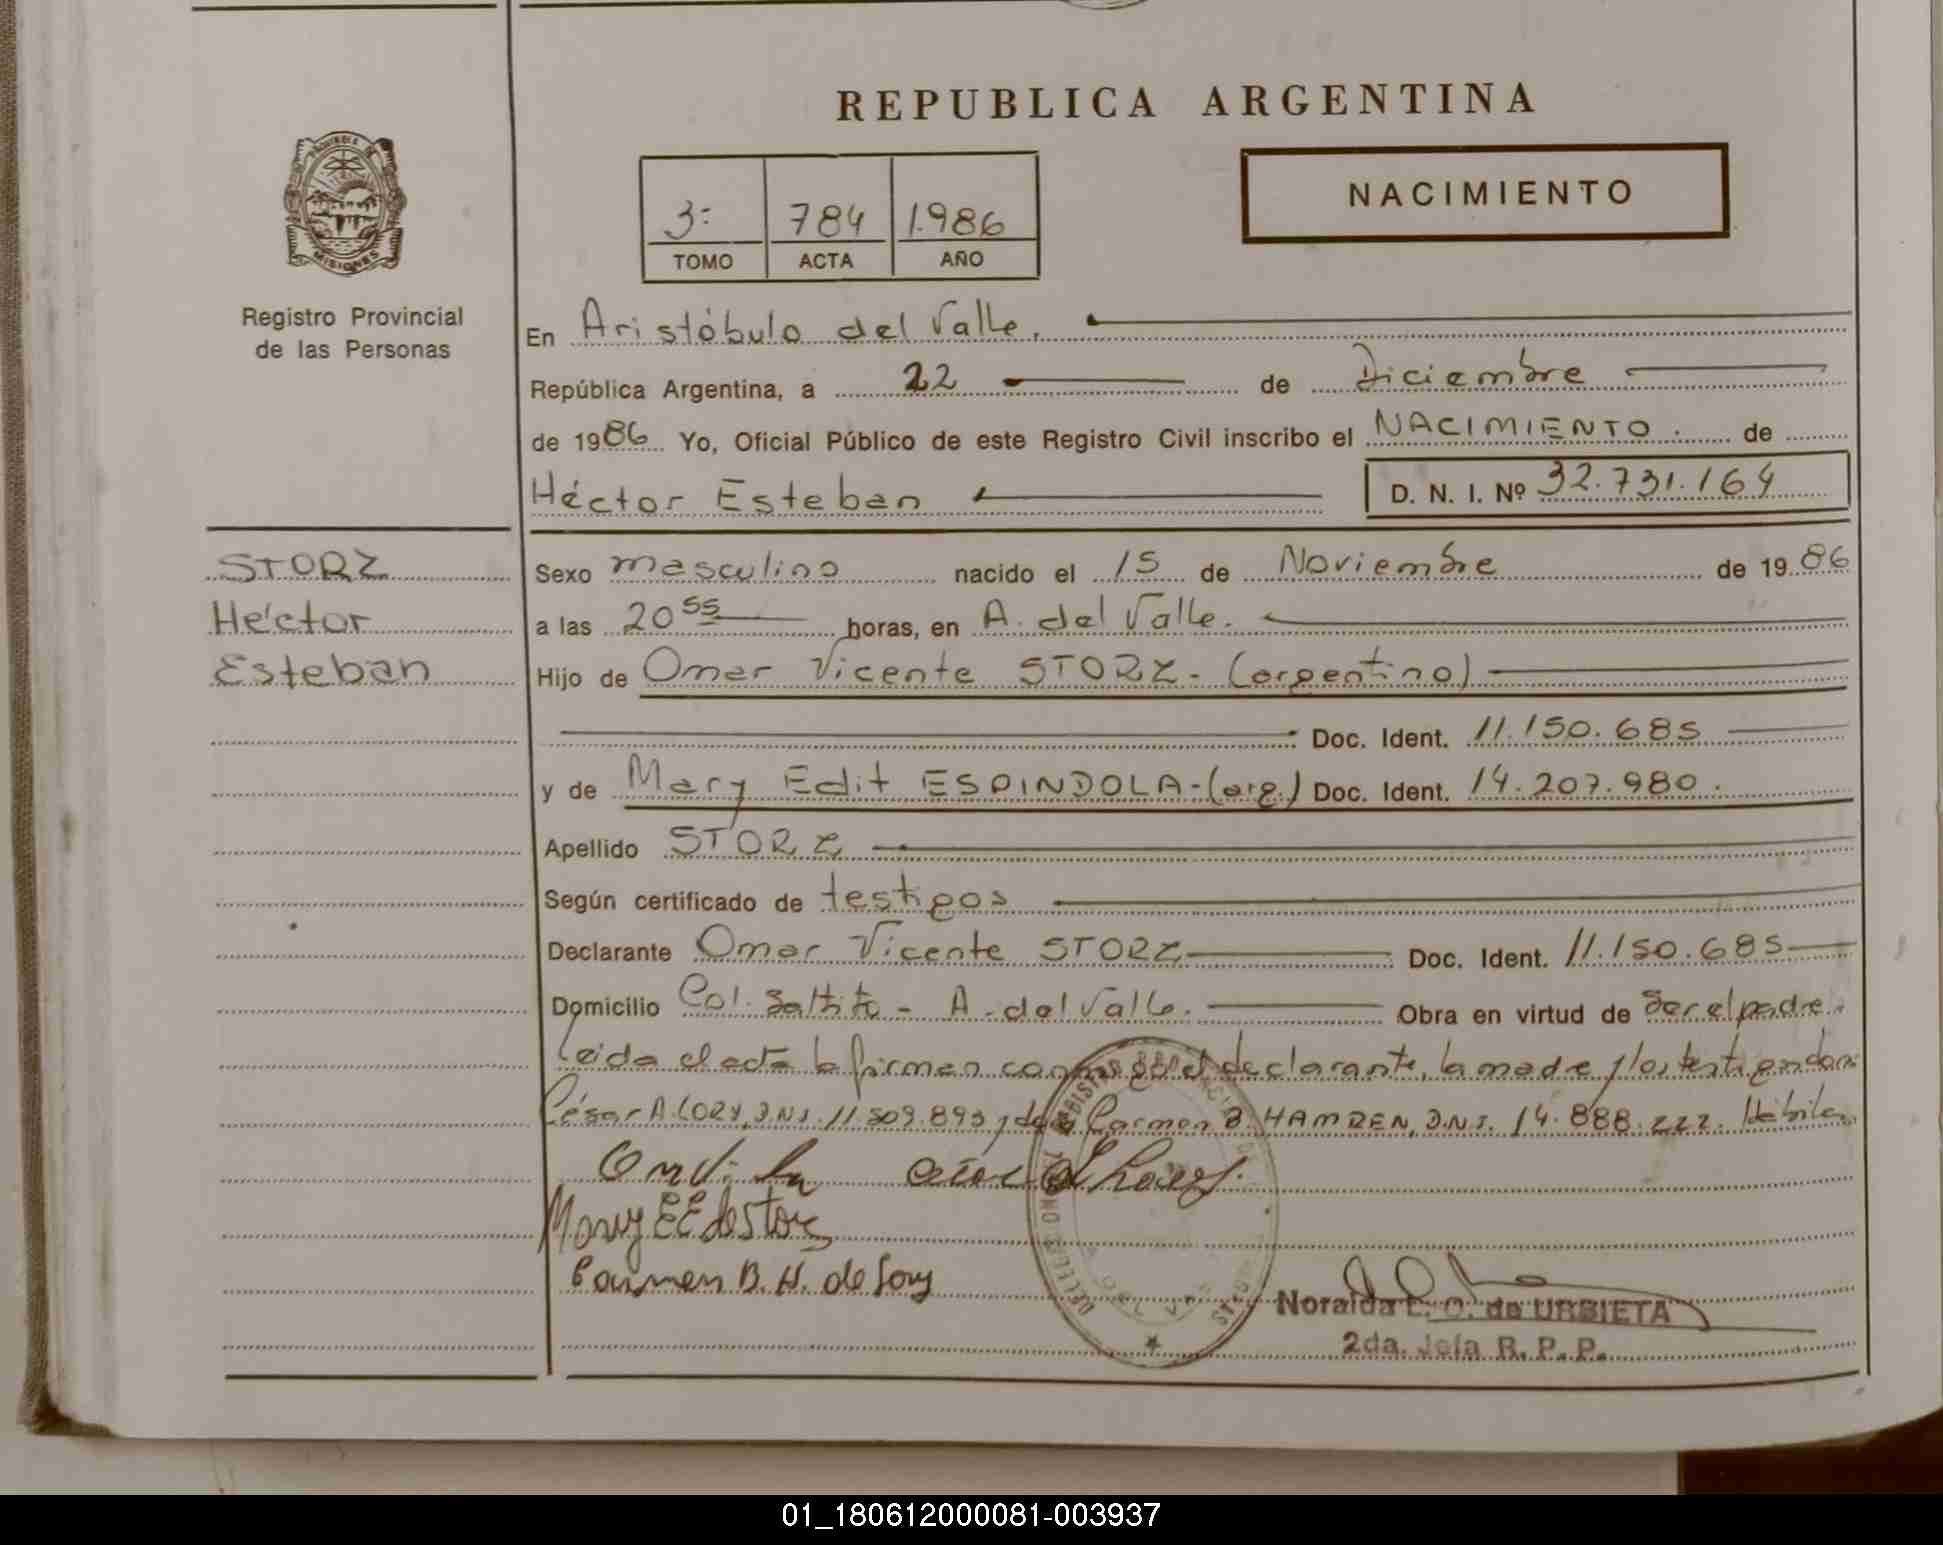 REPUBLICA ARGENTINA
NACIMIENTO
3= 784 1.986
TOMO ACTA AÑO
MISIONES
Registro Provincial
de las Personas
En Aristóbulo del Valle.
República Argentina, a 22 de Diciembre
de 1986 Yo, Oficial Público de este Registro Civil inscribo el NACIMIENTO de
Héctor Esteban D. N. I. Nº 32.731.164
STORZ
Héctor
Esteban
Sexo masculino nacido el 15 de Noviembre de 1986
a las 20 55 horas, en A. del Valle.
Hijo de Omar Vicente STORZ - (argentino)
Doc. Ident. 11.150.685
y de Mary Edit ESPINDOLA - (arg.) Doc. Ident. 14.207.980.
Apellido STORZ
Según certificado de testigos
Declarante Omar Vicente STORZ Doc. Ident. 11.150.685
Domicilio Col. Saltito - A. del Valle. Obra en virtud de ser el padre.
Leida el acta la firman conmigo el declarante, la madre y los testigos don
César A. LORY, D.N.I. 11.509.893 y doña Carmen B. HAMDEN, D.N.I. 14.888.222. Hábiles
Mary EE de Storz
Carmen B. H. de Lory
Noraida E. O. de URBIETA
2da. Jefa R. P. P.
01_180612000081-003937